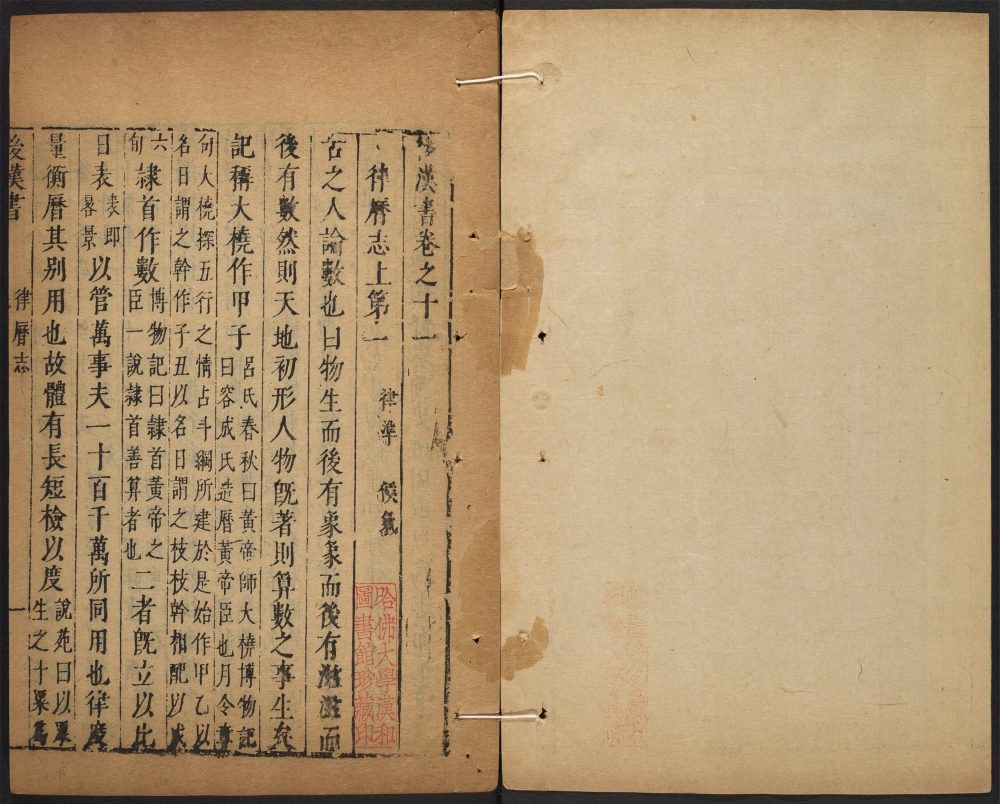 漢書卷之十一
律曆志上第一 律準 候氣
古之人論數也曰物生而後有象象而後有滋滋而
後有數然則天地初形人物旣著則算數之事生矣
記稱大橈作甲子 呂氏春秋曰黃帝師大橈博物記
曰容成氏造曆黃帝臣也月令章
句大橈探五行之情占斗綱所建於是始作甲乙以
名日謂之幹作子丑以名日謂之枝枝幹相配以成
六
旬 隸首作數 博物記曰隸首黃帝之
臣一說隸首善算者也 二者旣立以比
日表 表即
晷景 以管萬事夫一十百千萬所同用也律度
量衡曆其别用也故體有長短檢以度 說苑曰以粟
生之十粟爲
後漢書 律曆志 一
哈佛大學漢和
圖書館珍藏印